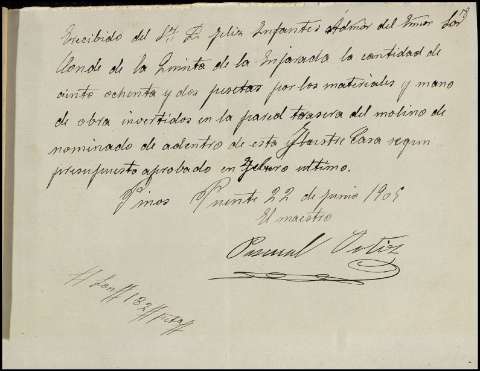 Recibido del Sr. D. Feliz Infantes Admor del Exmo Sor
Conde de la Quinta de la Enjarada la cantidad de
ciento ochenta y dos pesetas por los materiales y mano
de obra invertidos en la pared trasera del molino de
nominado de adentro de esta Ilustre Casa segun
presupuesto aprobado en Febrero ultimo.
Pinos Puente 22 de junio 190
El maestro
Pascual Ortiz
Son 182 Ptas